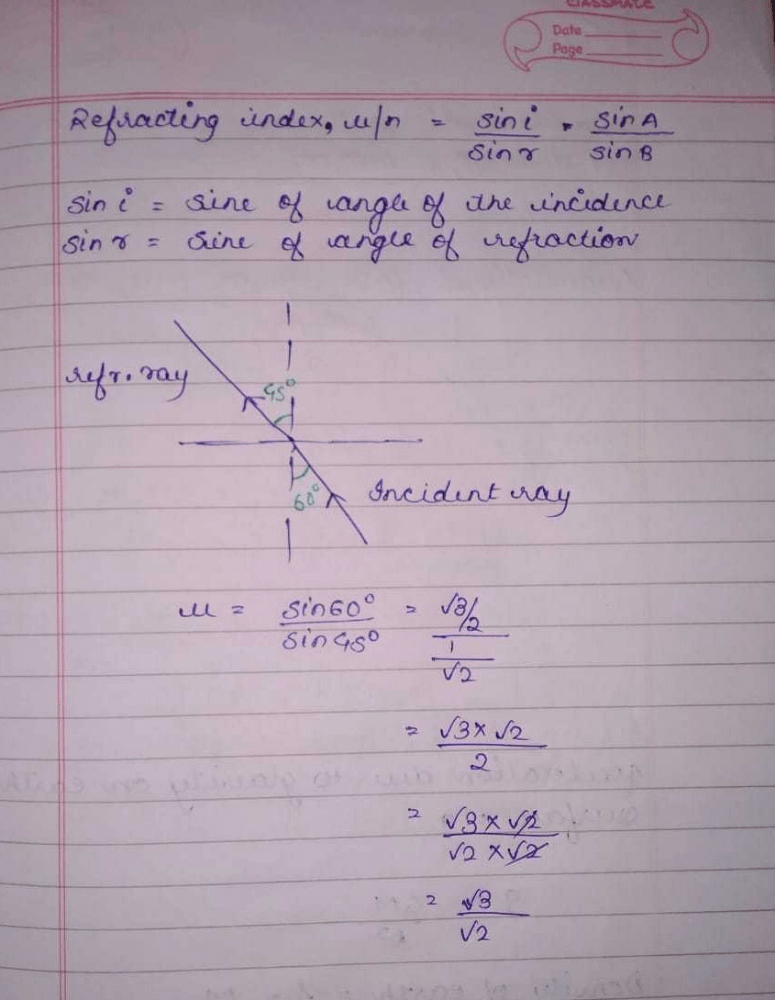 CLASSMATE
Date
Page
Refracting index, u/n = sin i / sin r = sin A / sin B
sin i = sine of angle of the incidence
sin r = sine of angle of refraction
refr. ray
45°
60°
Incident ray
u = sin60° / sin 45° = √3/2 / 1/√2
= √3 x √2 / 2
= √3 x √2 / √2 x √2
= √3 / √2